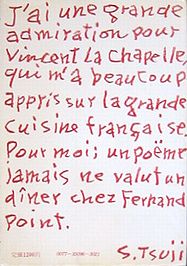 J'ai une grande
admiration pour
Vincent La Chapelle,
qui m'a beaucoup
appris sur la grande
cuisine française.
Pour moi; un poëme
jamais ne valut un
dîner chez Fernand
Point.
S. Tsuji